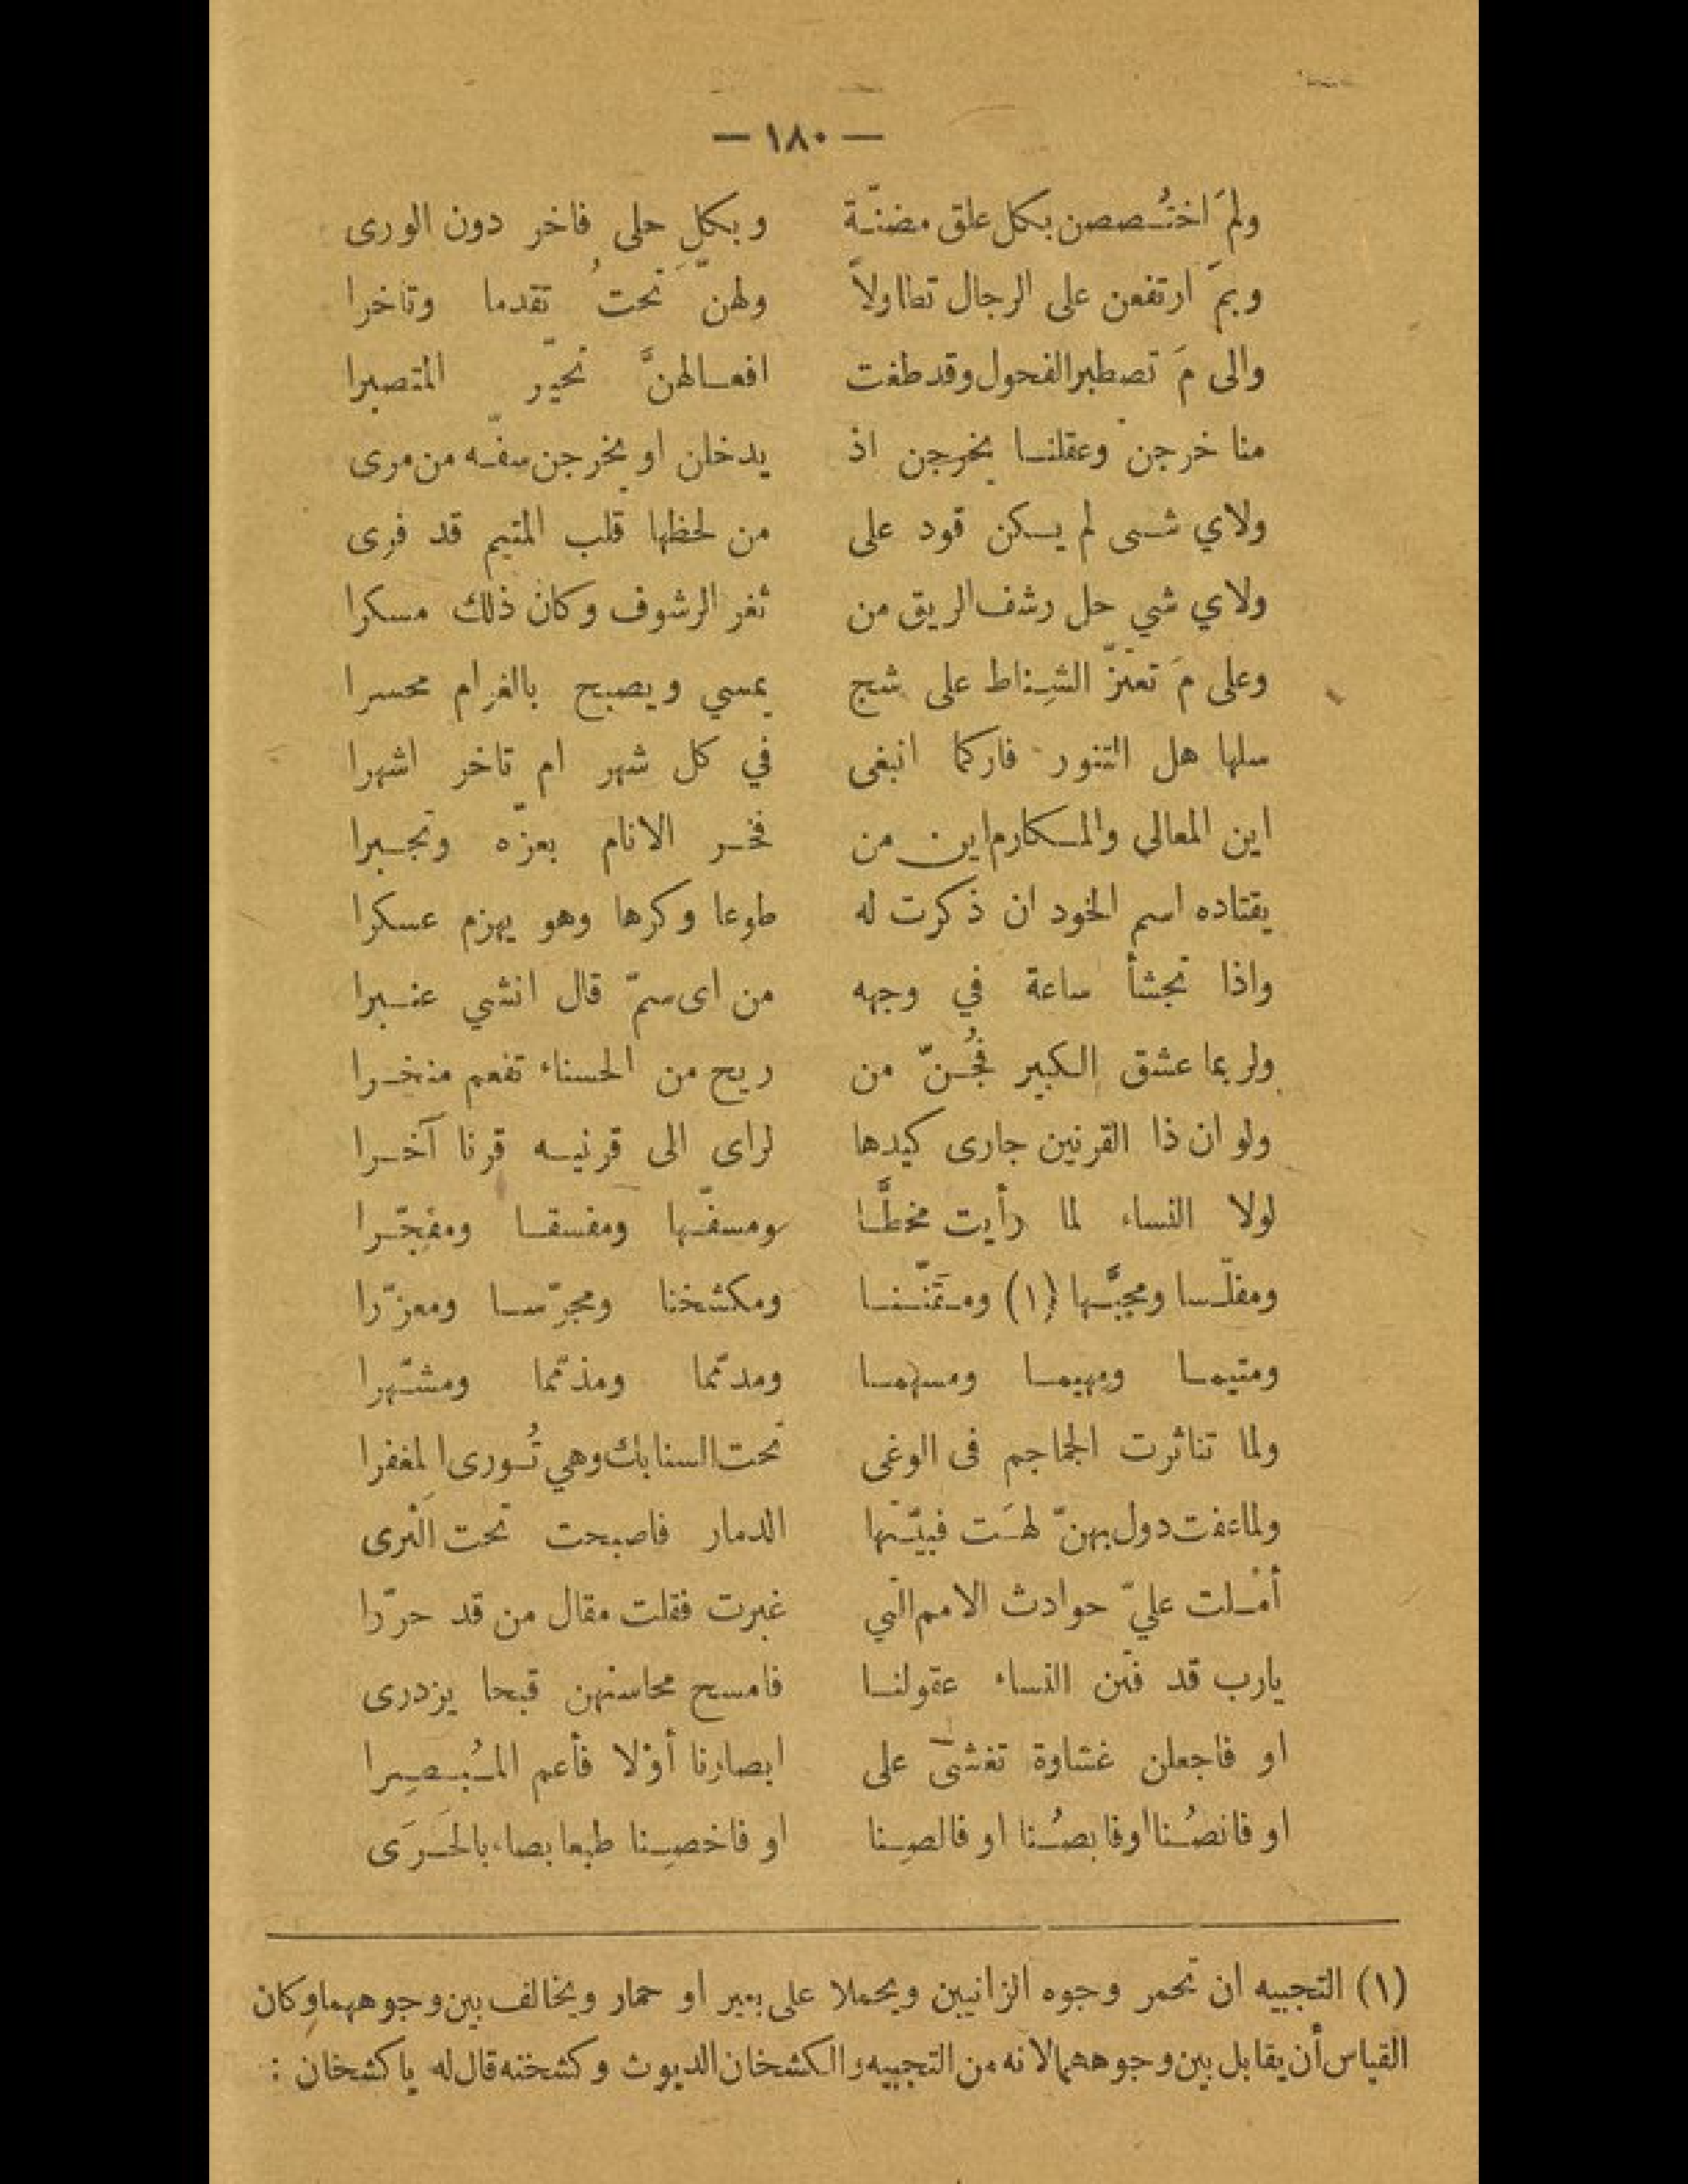 — ١٨٠ —
ولمَ اختُصصن بكل علق مضنّة وبكلِ حلى فاخر دون الورى
وبمَ ارتفعن على الرجال تطاولاً ولهنّ تحتُ تقدما وتاخرا
والى مَ تصطبر الفحول وقد طغت افعالهنَّ تحيّر المتصبرا
منا خرجن وعقلنا يخرجن اذ يدخلن او يخرجن سفّه من مرى
ولاي شى لم يكن قود على من لحظها قلب المتيم قد فرى
ولاي شي حل رشف الريق من ثغر الرشوف وكان ذلك مسكرا
وعلى مَ تعتزّ الشِناط على شج يمسي ويصبح بالغرام محسرا
سلها هل التنور فاركما انبغى في كل شهر ام تاخر اشهرا
اين المعالى والمكارم اين من فخر الانام بعزّه وتجبرا
يقتاده اسم الخود ان ذكرت له طوعا وكرها وهو يهزم عسكرا
واذا تجشأ ساعة في وجهه من اى سمّ قال انشي عنبرا
ولربما عشق الكبير فجُنّ من ريح من الحسناء تفعم منخرا
ولو ان ذا القرنين جارى كيدها لراى الى قرنيه قرنا آخرا
لولا النساء لما رأيت مخطَّا ومسفّها ومفسقا ومفجّرا
ومفلّسا ومجبَّها (١) ومتمنّنا ومكشخنا ومجرّسا ومعزّرا
ومتيما ومهيما ومسهما ومدمّما ومذمّما ومشتّهرا
ولما تناثرت الجماجم فى الوغى تحت السنابك وهي تُورى المغفرا
ولما عفت دول بهنّ لهَت فبيّتها الدمار فاصبحت تحت الثرى
أمْلت عليّ حوادث الامم التي غبرت فقلت مقال من قد حرّرا
يارب قد فتن النساء عقولنا فامسح محاسنهن قبحا يزدرى
او فاجعلن غشاوة تغشى على ابصارنا أوْلا فأعم المُبصِرا
او فانصُنا اوفا بصُنا او فالصِنا او فاخصِنا طبعا بصاء بالحَرَى
(١) التجبيه ان تحمر وجوه الزانيين ويحملا على بعير او حمار ويخالف بين وجوههما وكان
القياس أن يقابل بين وجوههما لانه من التجبيه والكشخان الديوث وكشخنه قال له ياكشخان :